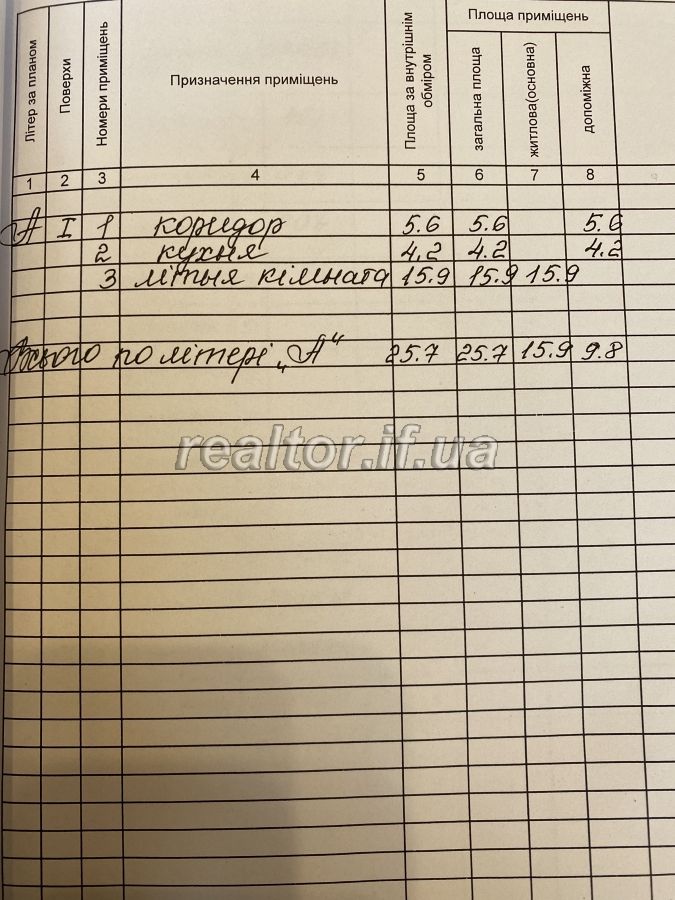 Площа приміщень
Літер за планом
Поверхи
Номери приміщень
Призначення приміщень
Площа за внутрішнім обміром
загальна площа
житлова(основна)
допоміжна
1 2 3 4 5 6 7 8
А І 1 коридор 5.6 5.6 5.6
2 кухня 4.2 4.2 4.2
3 літня кімната 15.9 15.9 15.9
Всього по літері „А“ 25.7 25.7 15.9 9.8
realtor.if.ua